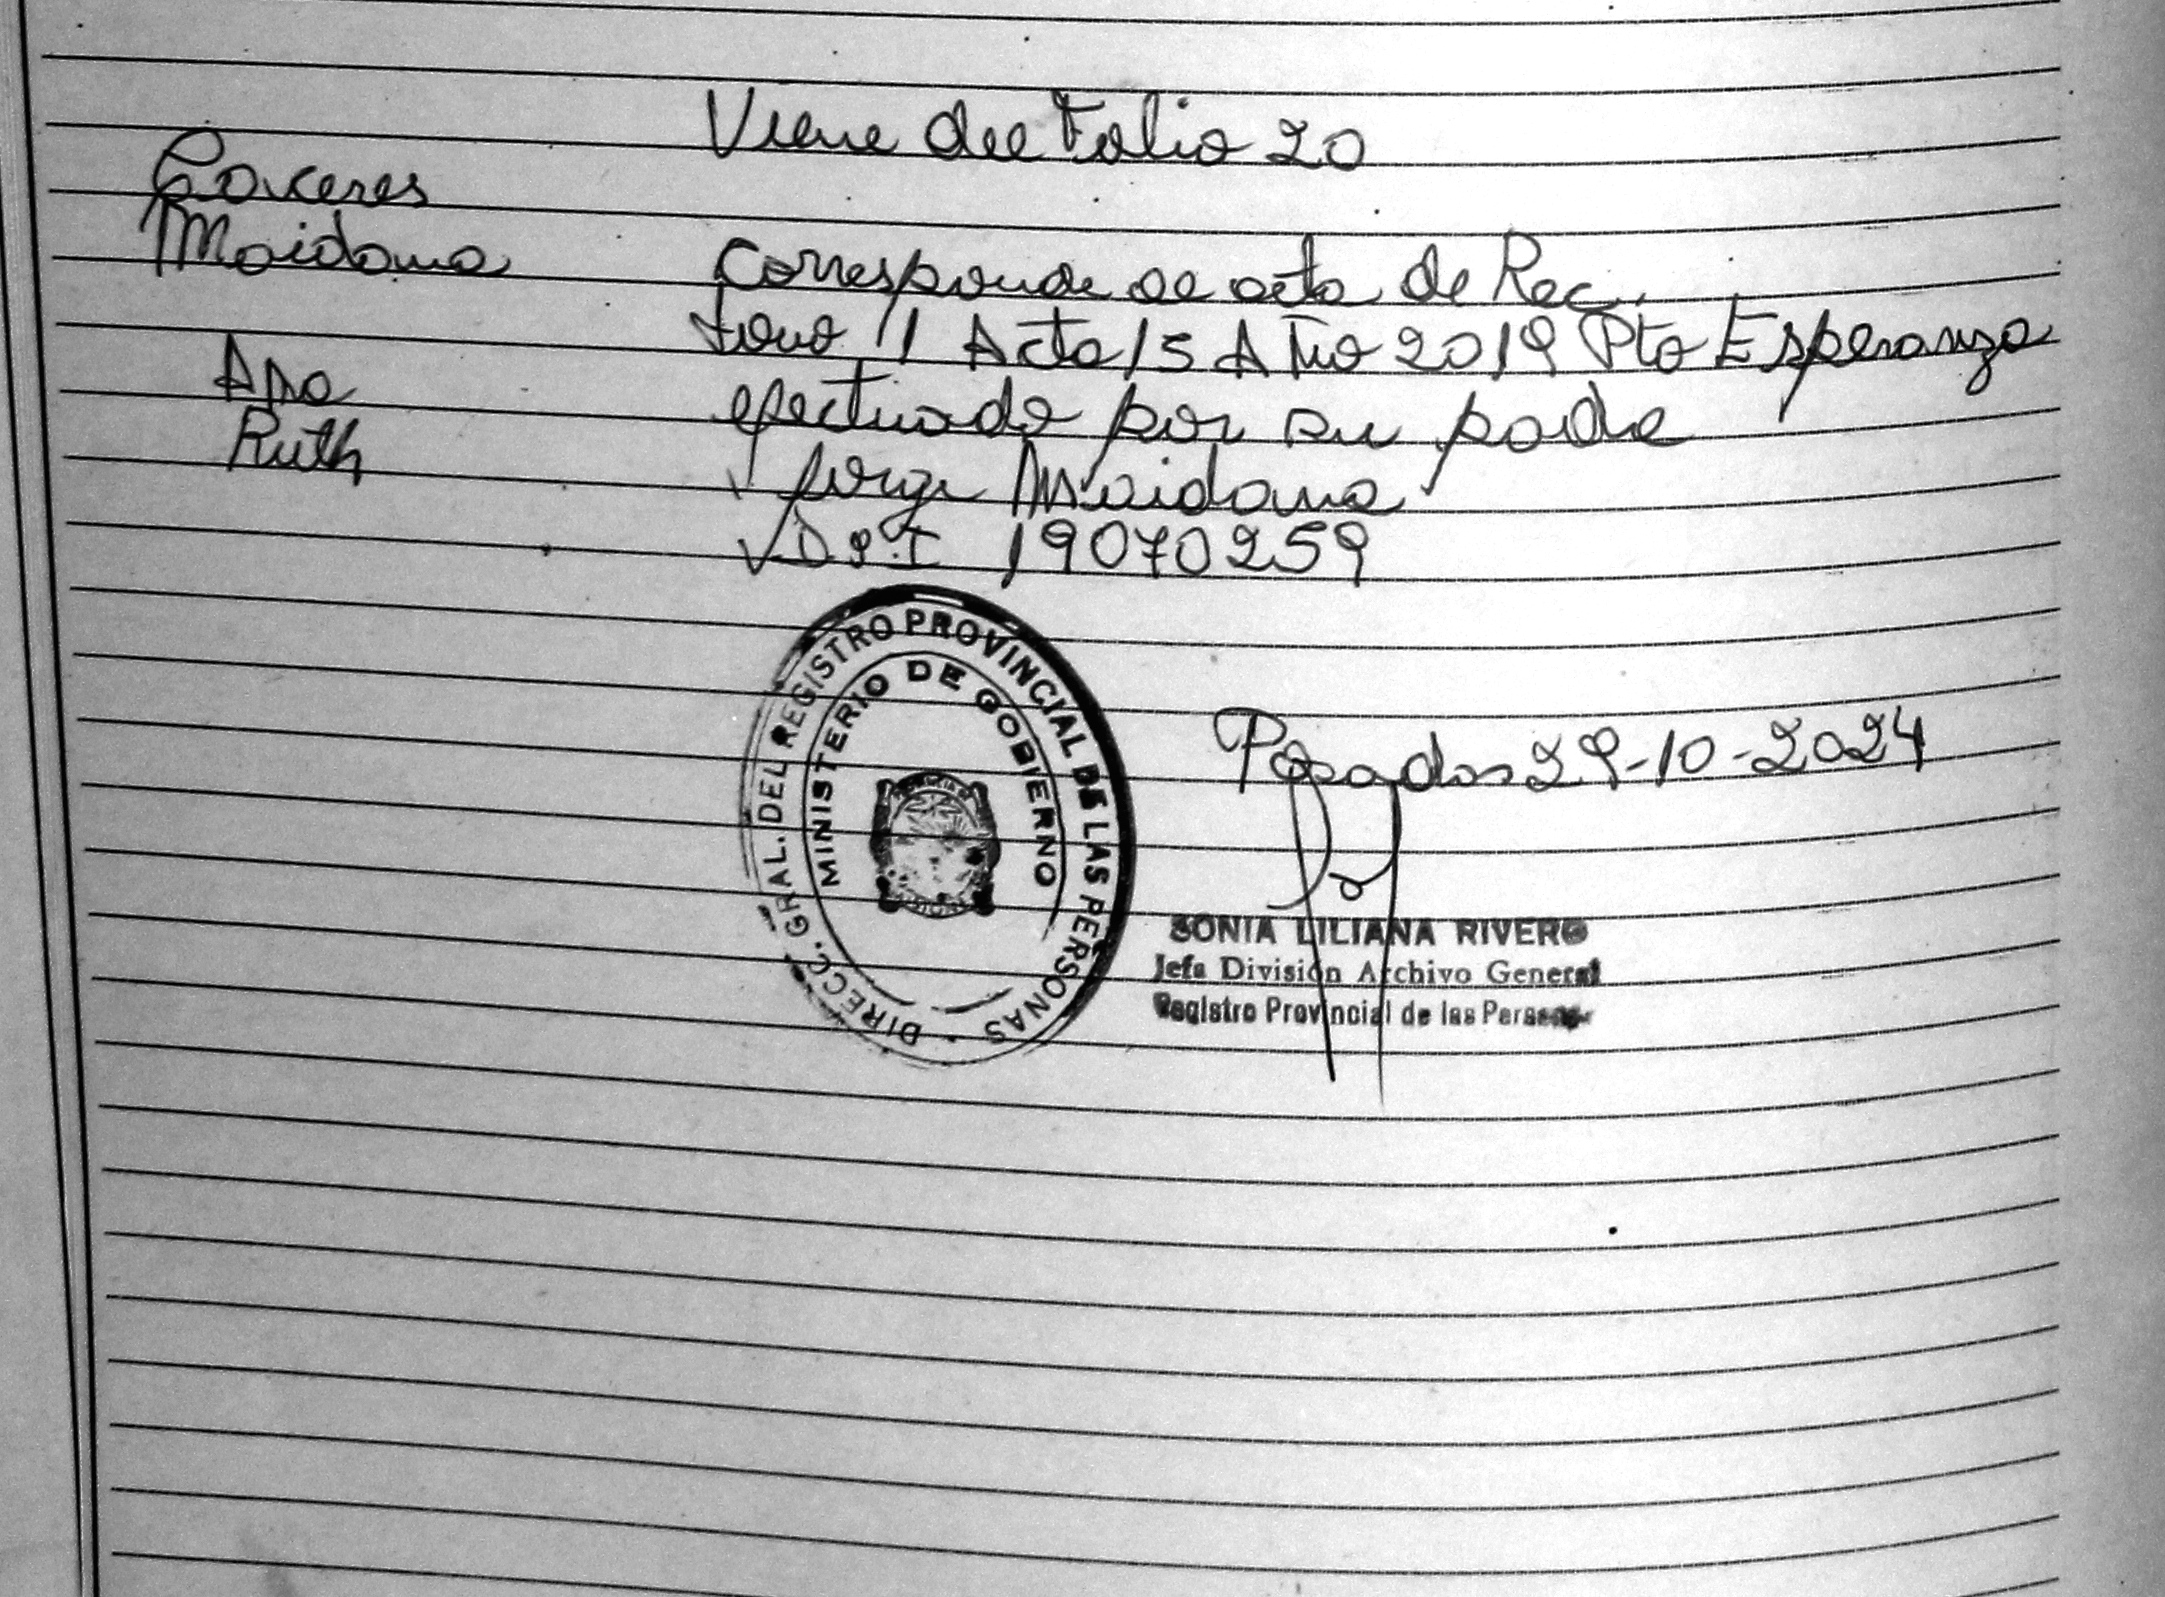 Viene del Folio 20
Caceres
Maidana
Corresponde al acta de Rec.
tomo 1 Acta 15 Año 2019 Pto Esperanza
Ana
Ruth
efectuado por su padre
Jorge Maidana
D.N.I 19070259
DIRECC. GRAL. DEL REGISTRO PROVINCIAL DE LAS PERSONAS
MINISTERIO DE GOBIERNO
Posadas 29-10-2024
SONIA LILIANA RIVERO
Jefa División Archivo General
Registro Provincial de las Personas